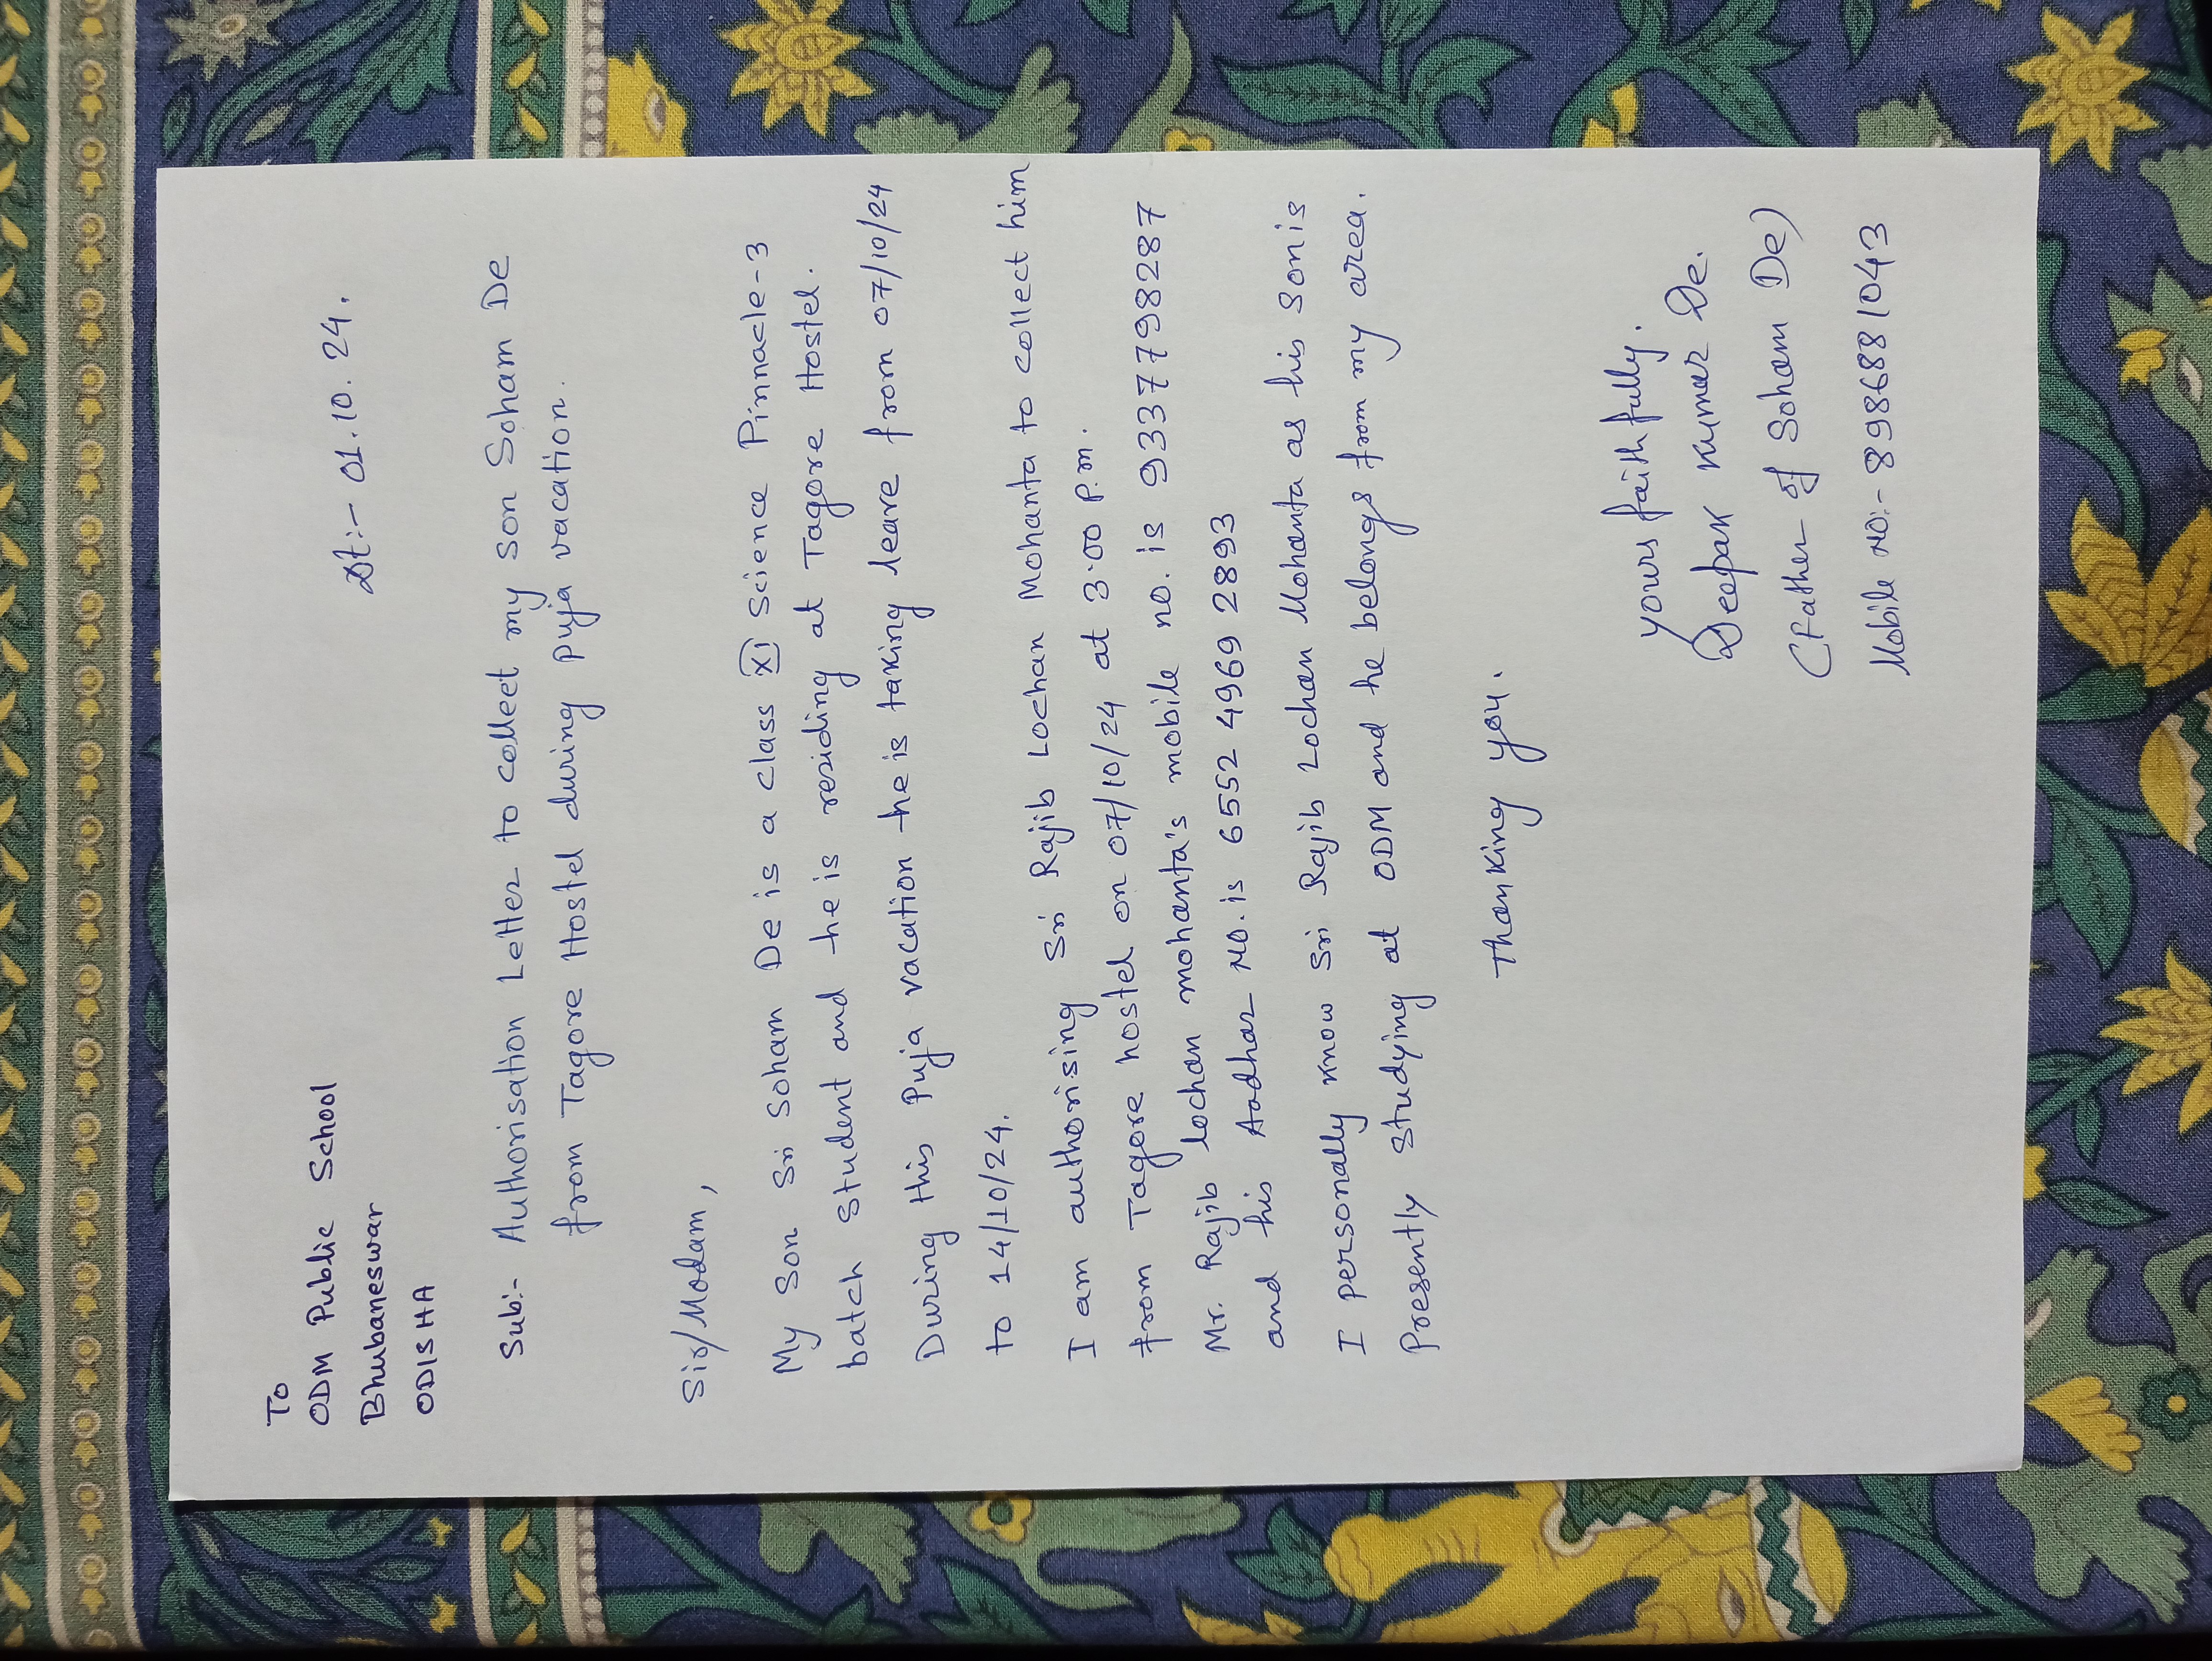 To
ODM Public School
Bhubaneswar
ODISHA
Dt:- 01.10.24.
Sub:- Authorisation Letter to collect my son Soham De
from Tagore Hostel during Puja vacation.
Sir/Madam,
My Son Sri Soham De is a class XI Science Pinnacle-3
batch student and he is residing at Tagore Hostel.
During this Puja vacation he is taking leave from 07/10/24
to 14/10/24.
I am authorising Sri Rajib Lochan Mohanta to collect him
from Tagore hostel on 07/10/24 at 3.00 P.m.
Mr. Rajib lochan mohanta's mobile no. is 9337798287
and his Aadhar NO. is 6552 4969 2893
I personally know Sri Rajib Lochan Mohanta as his Son is
Presently studying at ODM and he belongs from my area.
Thanking you.
yours faithfully.
Deepak Kumar De.
(Father of Soham De)
Mobile NO:- 8986881043